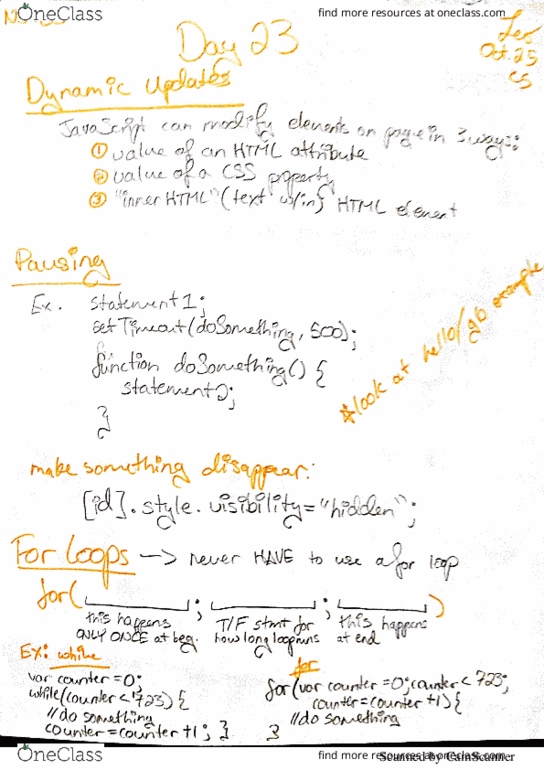 OneClass
find more resources at oneclass.com
Day 23
Oct. 25
CS
Dynamic Updates
JavaScript can modify elements on page in 3 ways:
① value of an HTML attribute
② value of a CSS property
③ "inner HTML" (text w/in) HTML element
Pausing
Ex. statement1;
setTimeout(doSomething, 500);
function doSomething() {
statement2;
}
*look at hello/gb example
make something disappear:
[id].style.visibility="hidden";
For Loops —> never HAVE to use a for loop
for( ; ; )
this happens ONLY ONCE at beg.
T/F stmt for how long loop runs
this happens at end
Ex: while
var counter=0;
while(counter<723) {
//do something
counter=counter+1; }
for
for(var counter=0;counter<723;
counter=counter+1){
//do something
}
OneClass
find more resources at oneclass.com
Scanned by CamScanner